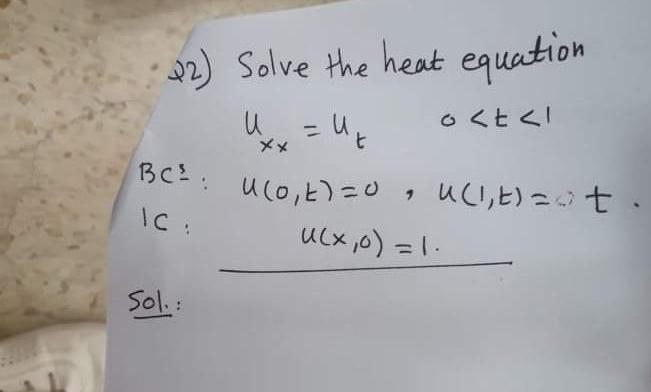 Q2) Solve the heat equation
u_xx = u_t 0 < t < 1
BCs: u(0,t) = 0 , u(1,t) = t.
IC: u(x,0) = 1.
Sol.: